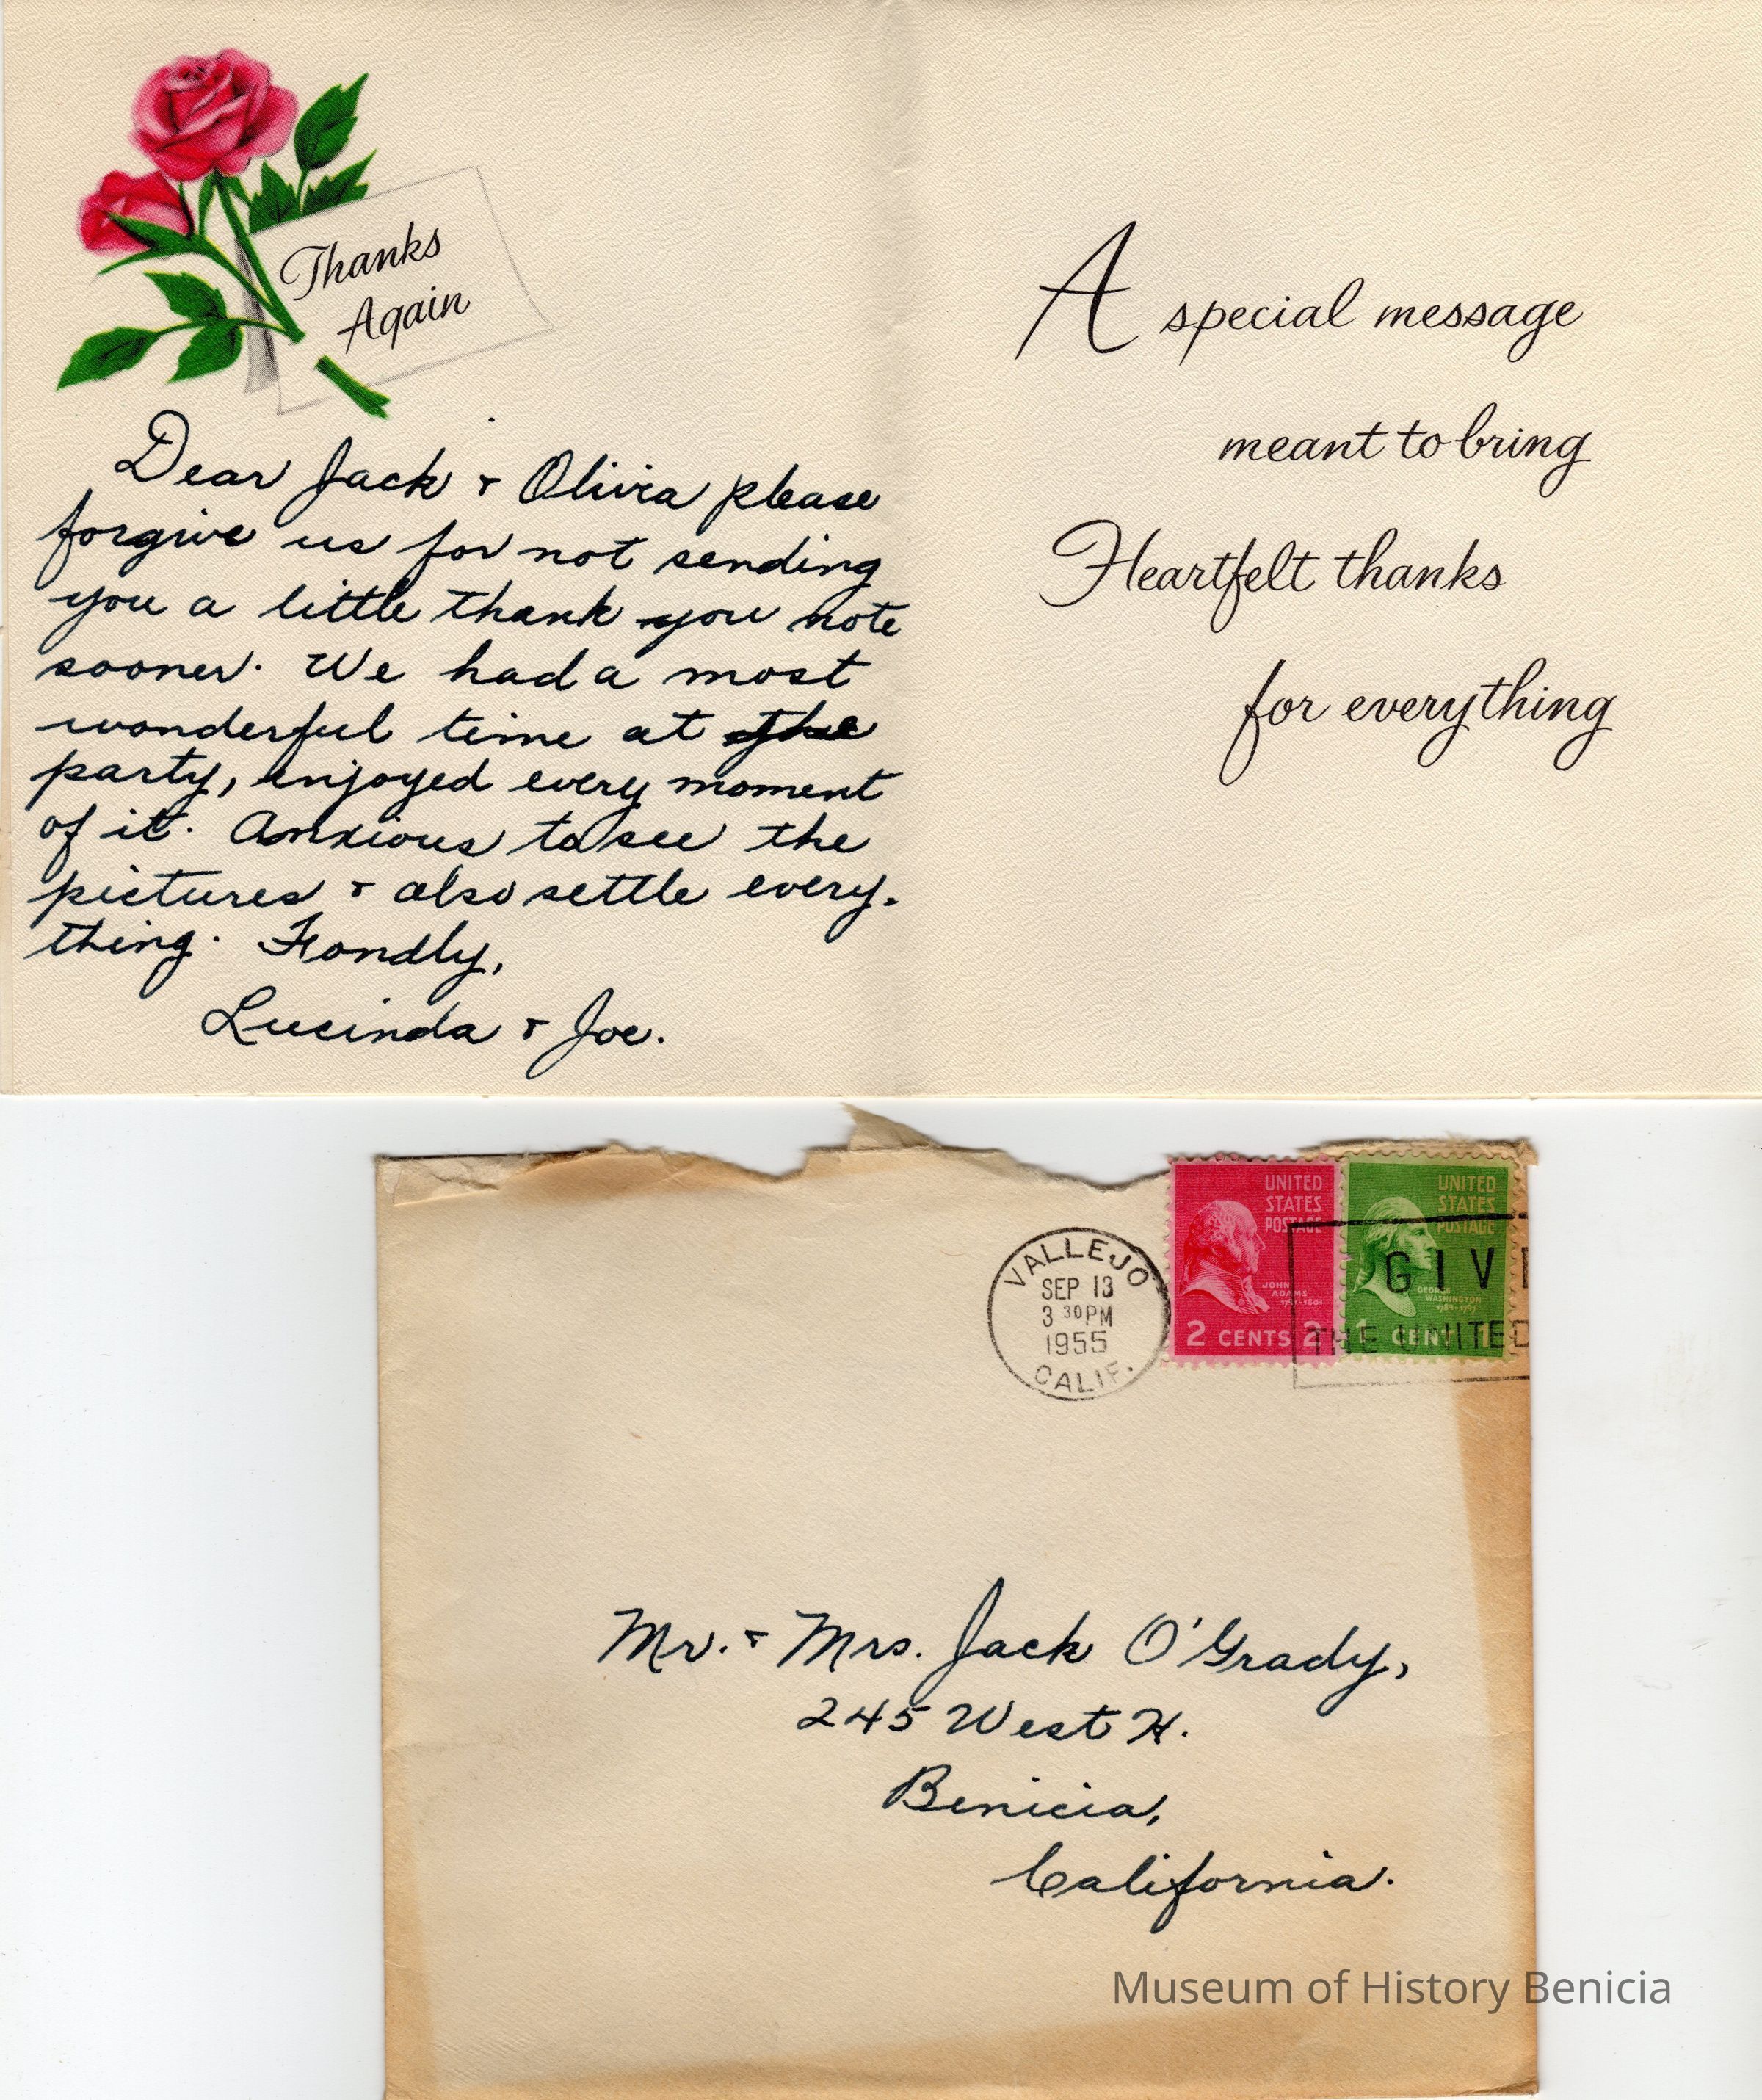 Thanks
Again
Dear Jack & Olivia please
forgive us for not sending
you a little thank you note
sooner. We had a most
wonderful time at the
party, enjoyed every moment
of it. Anxious to see the
pictures & also settle every-
thing. Fondly,
Lucinda & Joe.
A special message
meant to bring
Heartfelt thanks
for everything
VALLEJO
SEP 13
3 30PM
1955
CALIF.
UNITED
STATES
POSTAGE
JOHN
ADAMS
1797-1801
2 CENTS 2
UNITED
STATES
POSTAGE
GEORGE
WASHINGTON
1789-1797
1 CENT 1
GIV
THE UNITED
Mr. & Mrs. Jack O'Grady,
245 West H.
Benicia,
California.
Museum of History Benicia